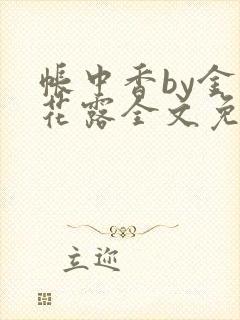 帐中香by金
花露全文免
立迩